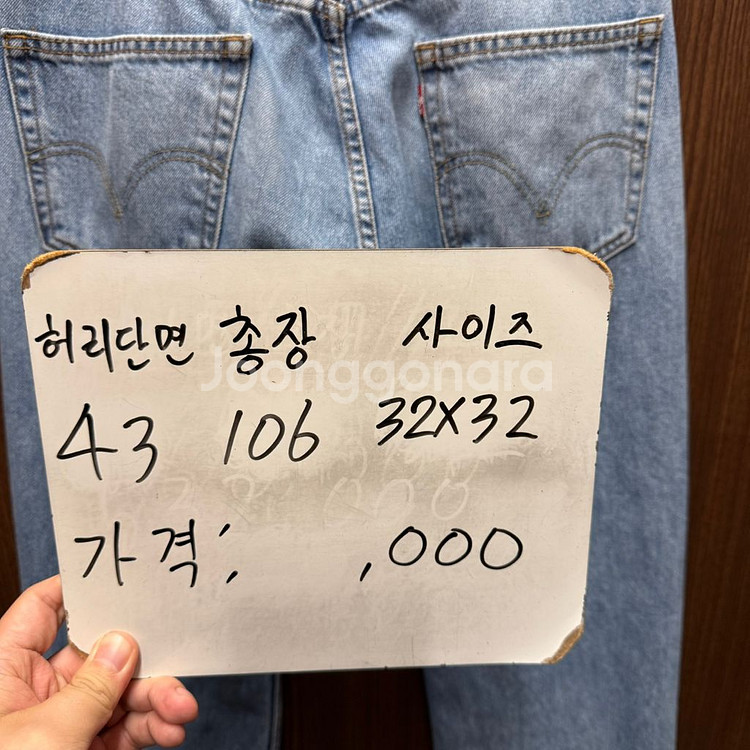 허리단면 총장 사이즈
Joonggonara
43 106 32X32
가격; ,000